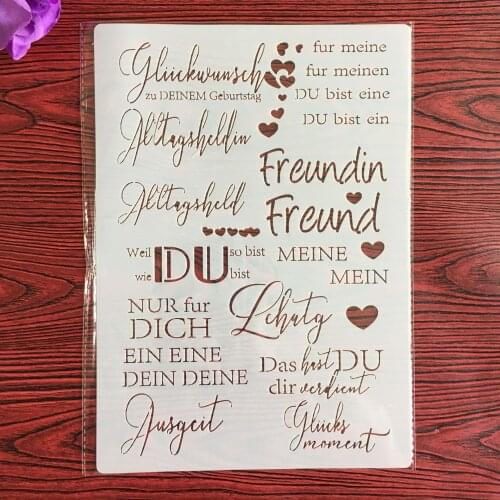 Glückwunsch
zu DEINEM Geburtstag
fur meine
fur meinen
DU bist eine
DU bist ein
Alltagsheldin
Alltagsheld
Freundin
Freund
Weil DU so bist
wie bist
MEINE
MEIN
NUR fur
DICH
Lehutg
EIN EINE
DEIN DEINE
Das hast DU
dir verdient
Ausgeit
Glücks
moment